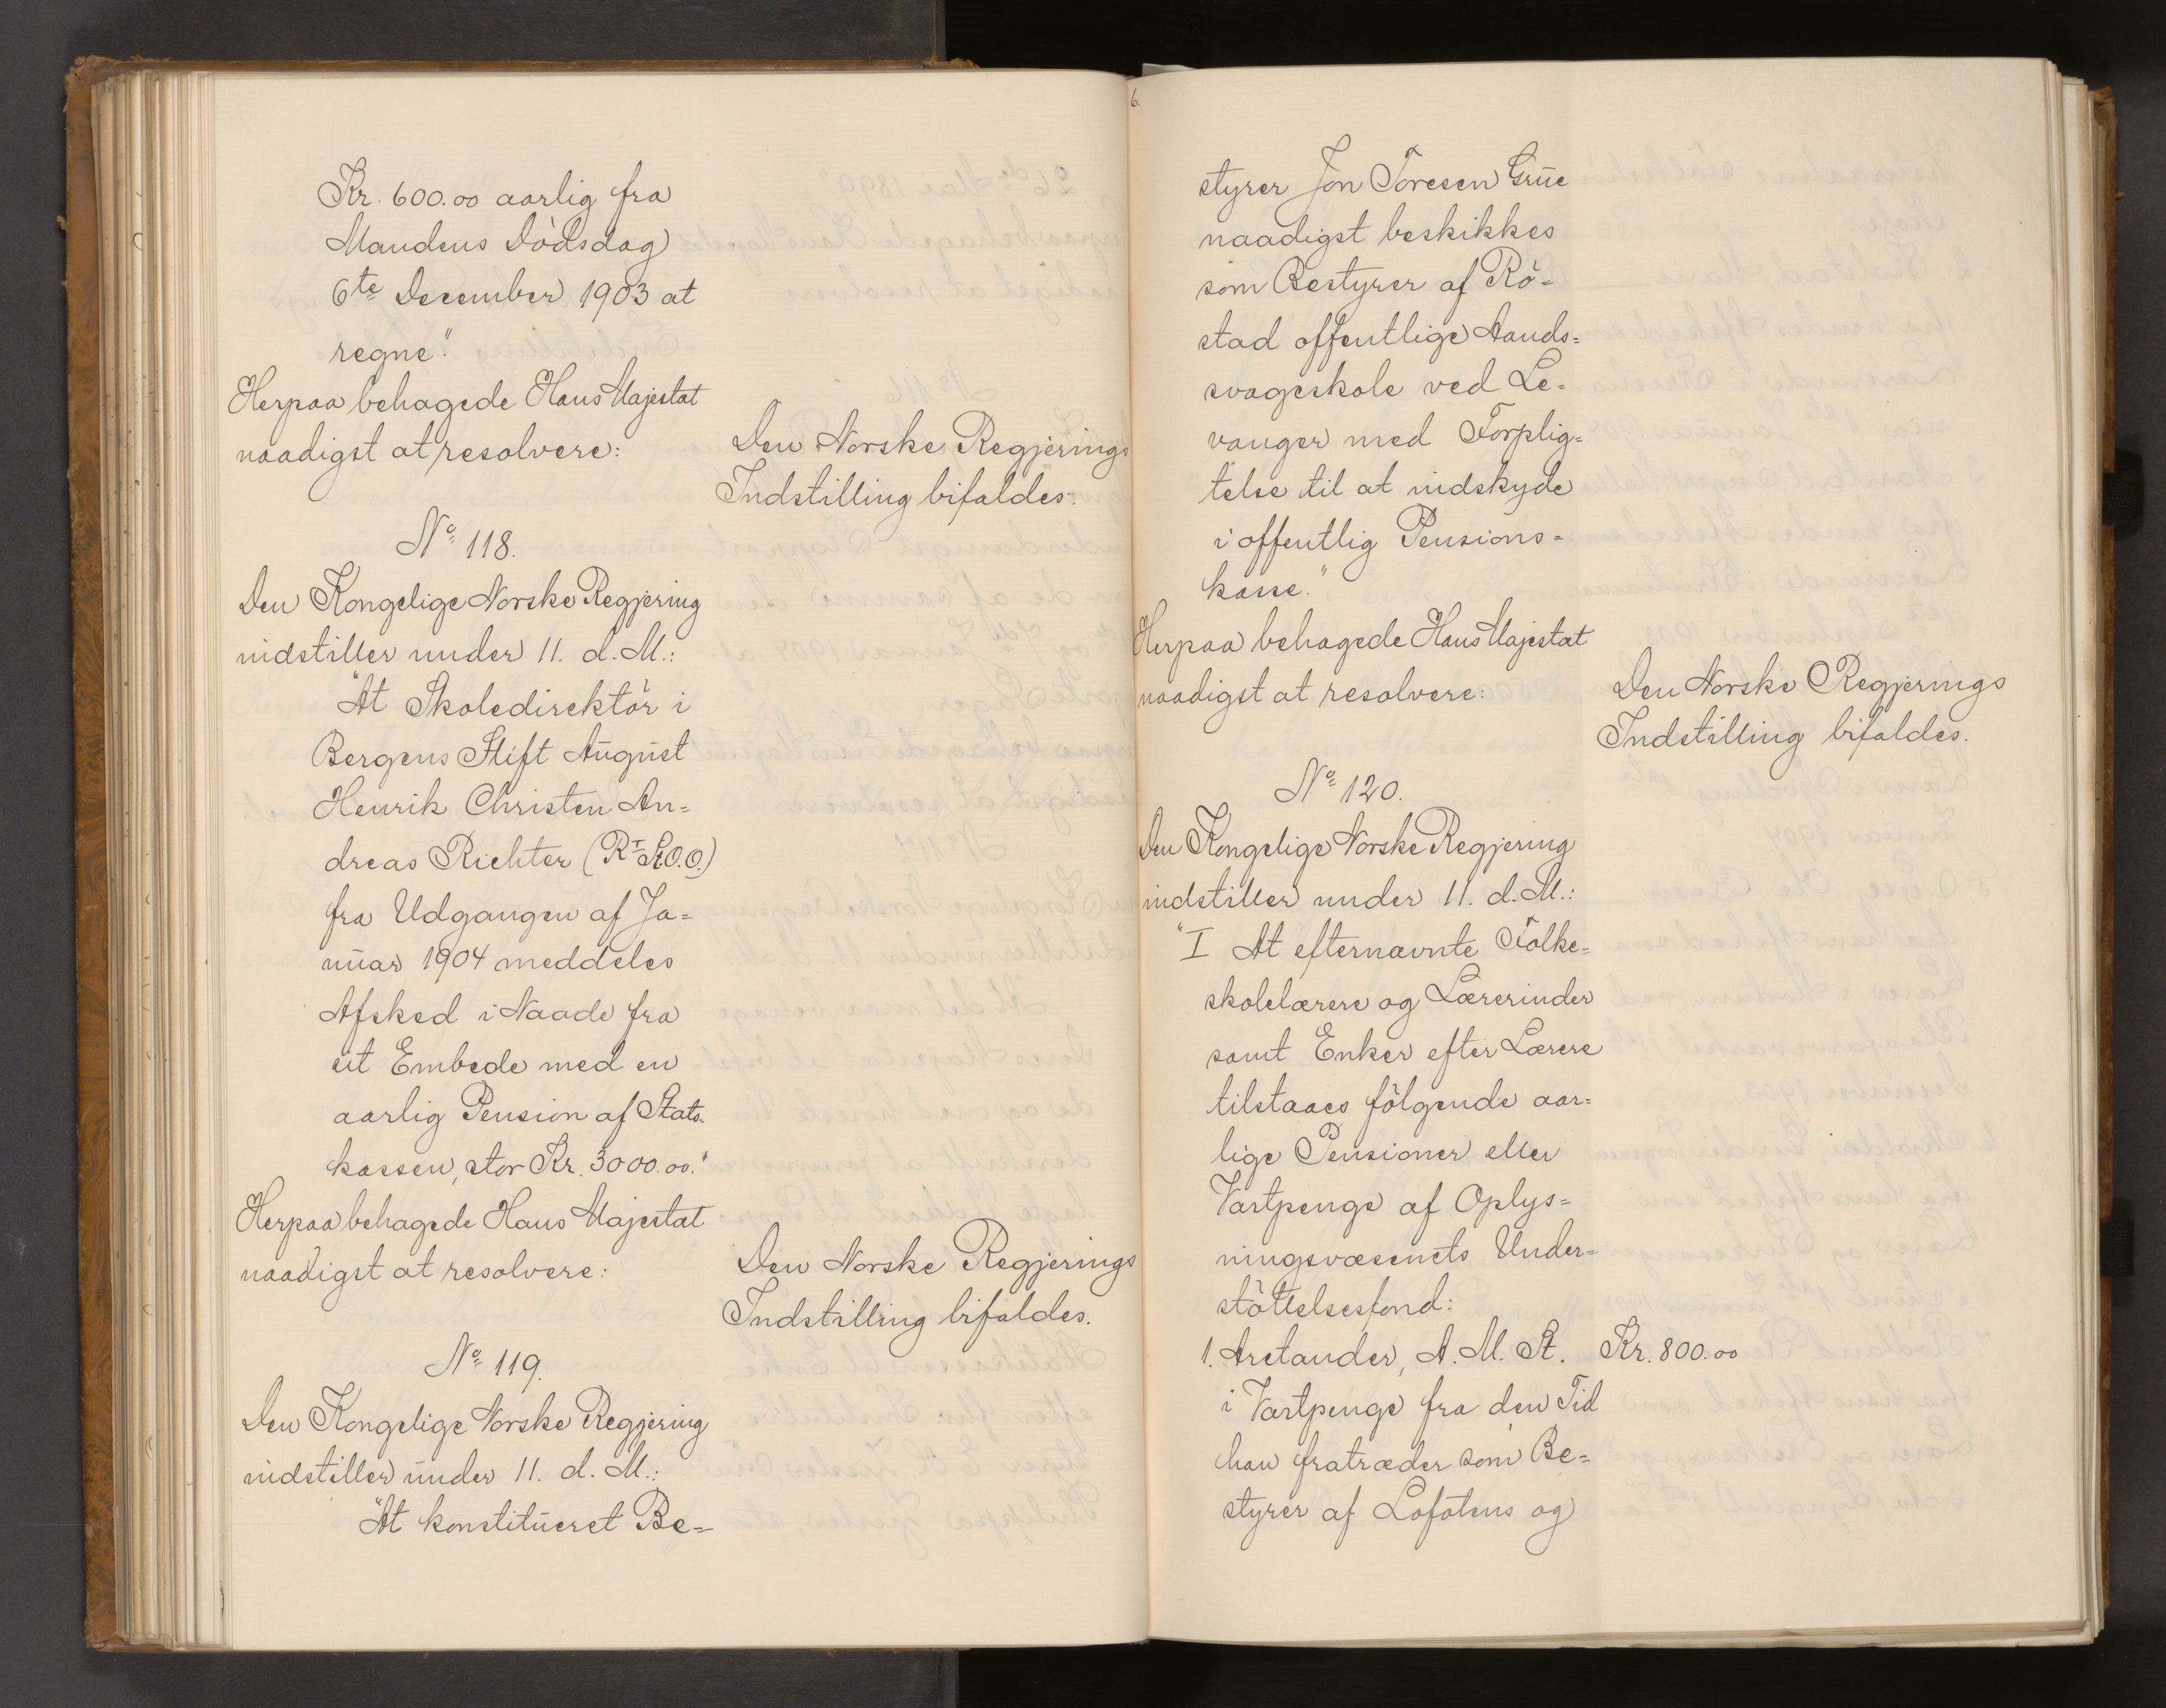 Kr. 600.00 aarlig fra
Mandens Dödsdag
6te December 1903 at
regne."
Herpaa behagede Hans Majestæt
naadigst at resolvere:
Den Norske Regjerings
Indstilling bifaldes.
No 118.
Den Kongelige Norske Regjering
indstiller under 11. d. M.:
"At Skoledirektör i
Bergens Stift August
Henrik Christen An=
dreas Richter (RI St.O.O.)
fra Udgangen af Ja=
nuar 1904 meddeles
Afsked i Naade fra
sit Embede med en
aarlig Pension af Stats-
kassen, stor Kr. 3000.00."
Herpaa behagede Hans Majestæt
naadigst at resolvere:
Den Norske Regjerings
Indstilling bifaldes.
No 119.
Den Kongelige Norske Regjering
indstiller under 11. d. M.:
"At konstitueret Be=
6.
styrer Jon Toresen Grue
naadigst beskikkes
som Bestyrer af Rö=
stad offentlige Aands=
svageskole ved Le=
vanger med Forplig=
telse til at indskyde
i offentlig Pensions=
kasse."
Herpaa behagede Hans Majestæt
naadigst at resolvere:
Den Norske Regjerings
Indstilling bifaldes.
No 120.
Den Kongelige Norske Regjering
indstiller under 11. d. M.:
"I At efternævnte Folke=
skolelærere og Lærerinder
samt Enker efter Lærere
tilstaaes fölgende aar=
lige Pensioner eller
Vartpenge af Oplys=
ningsvæsenets Under=
stöttelsesfond:
1. Arctander, A. M. St. Kr. 800.00
i Vartpenge fra den Tid
han fratræder som Be=
styrer af Lofotens og